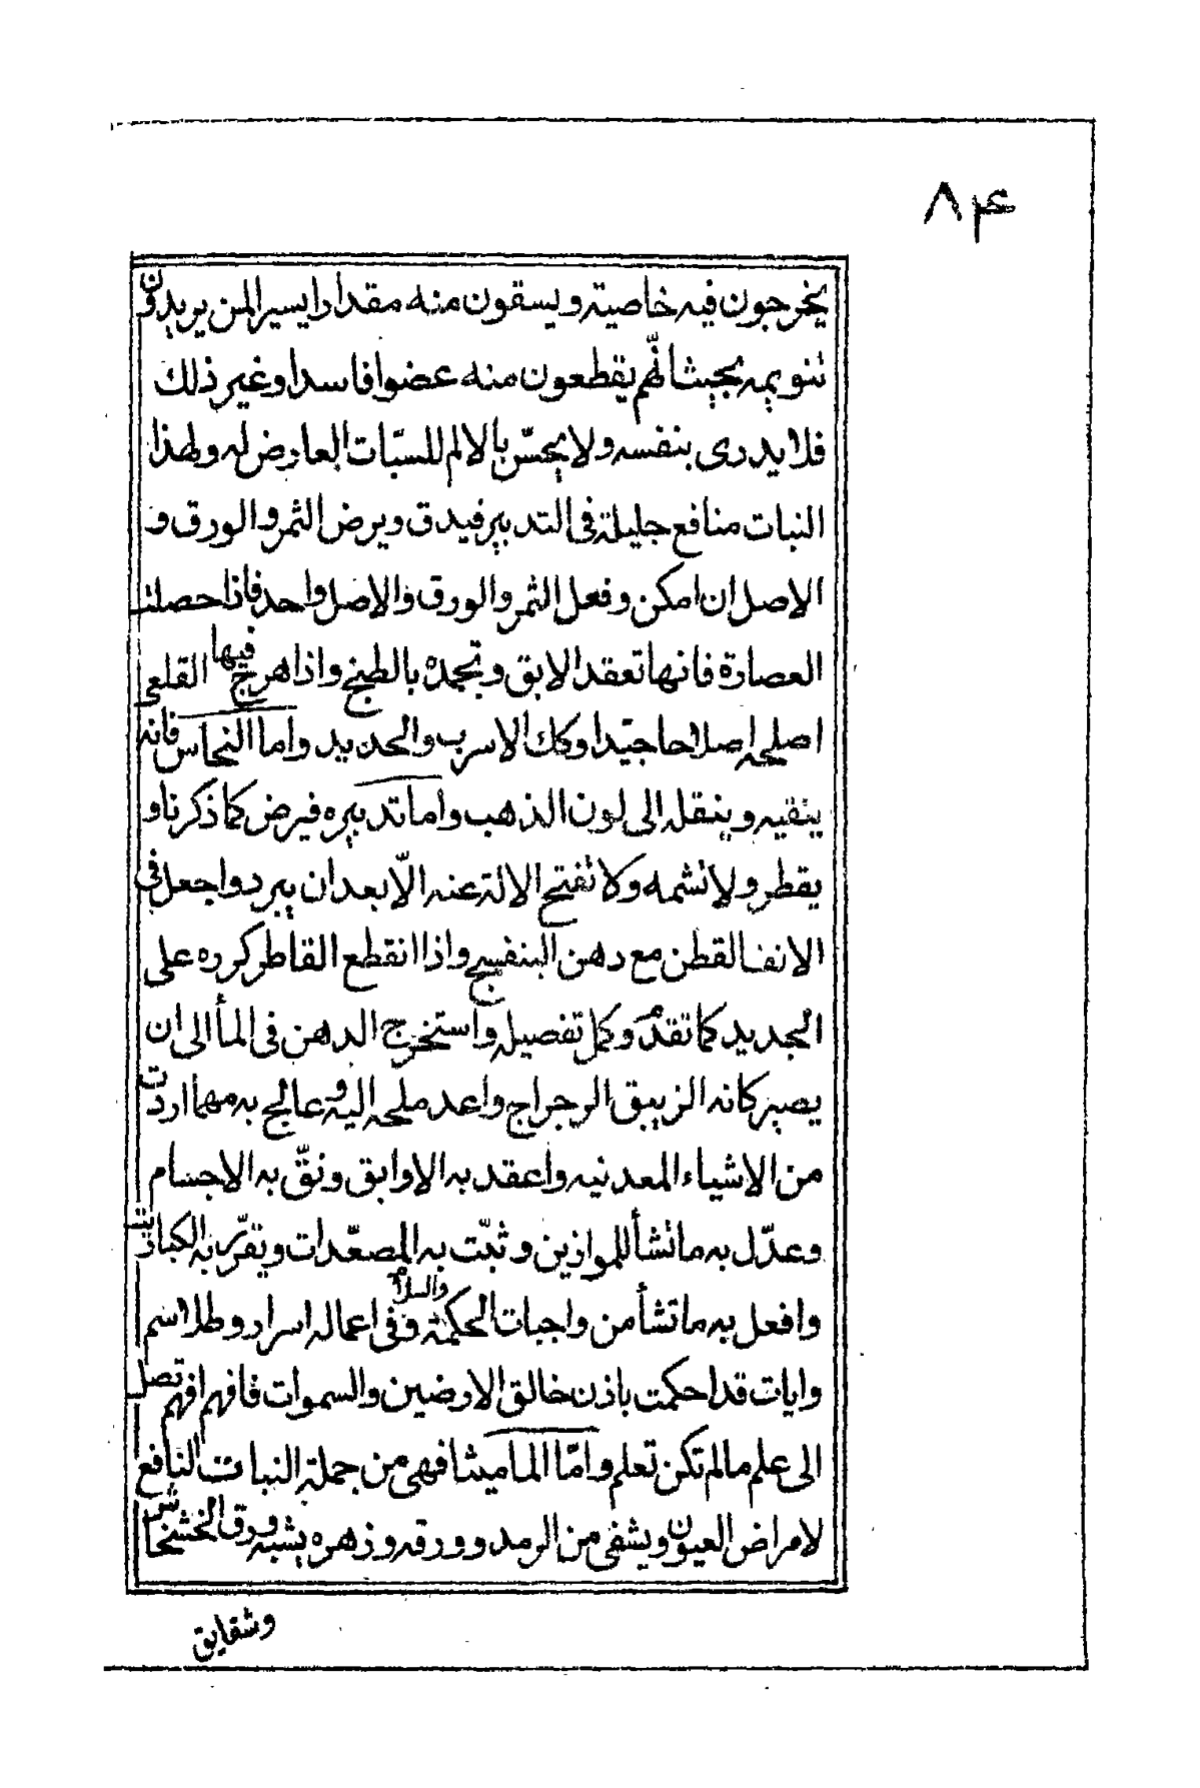 ٨۴
يخرجون فيه خاصيته ويسقون منه مقدارا يسيرا لمن يريدون
تنويمه بحيث انهّم يقطعون منه عضوا فاسدا وغير ذلك
فلا يدرى بنفسه ولا يحسّ بالالم للسبّات العارض له ولهذا
النبات منافع جليلة فى التدبير فيدق ويرض الثمر والورق و
الاصل ان امكن وفعل الثمر والورق والاصل واحد فاذا حصلت
العصارة فانها تعقد الابق وتجمده بالطبخ واذا هرج فيها القلعى
اصلحه اصلاحا جيّدا وكك الاسرب والحديد واما النحاس فانه
ينقيه وينقله الى لون الذهب واما تدبيره فيرض كما ذكرنا و
يقطر ولا تشمه ولا تفتح الالة عنه الاّ بعد ان يبرد واجعل فى
الانف القطن مع دهن البنفسج واذا انقطع القاطر كرره على
الجديد كما تقدم وكمل تفصيله واستخرج الدهن فى المأ الى ان
يصير كانه الزيبق الرجراج واعد ملحه اليه وعالج به مهما اردت
من الاشياء المعدنيه واعقد به الاوابق ونقّ به الاجسام
وعدّل به ما تشأ للموازين وثبّت به المصعّدات وتقرّر به الكباريت
وافعل به ما تشأ من واجبات الحكمة والسلام وفى اعماله اسرار وطلاسم
وايات قد احكمت باذن خالق الارضين والسموات فافهم افهم تصل
الى علم ما لم تكن تعلم وامّا الماميثا فهى من جملة النبات النافع
لامراض العيون ويشفى من الرمد وورقه وزهره يشبه ورق الخشخاش
وشقايق